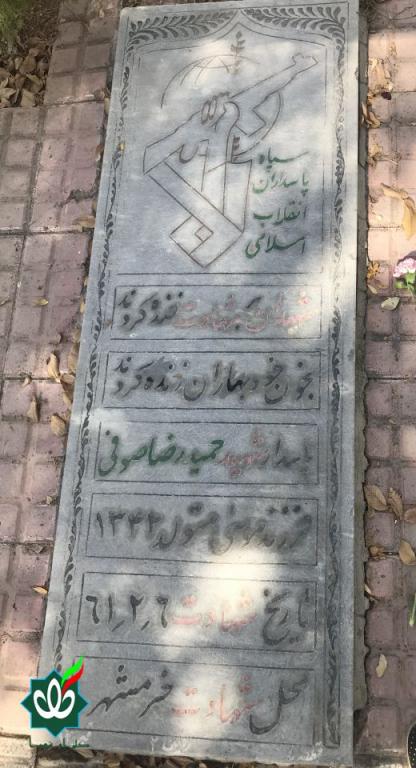 سپاه
پاسداران
انقلاب
اسلامی
شهیدان
شهادت
کردند
بخون خود بهاران زنده کردند
پاسدار شهید حمیدرضا صوفی
فرزند موسی متولد ۱۳۴۲
تاریخ شهادت ۶٫۲٫۶۱
محل شهادت خرمشهر